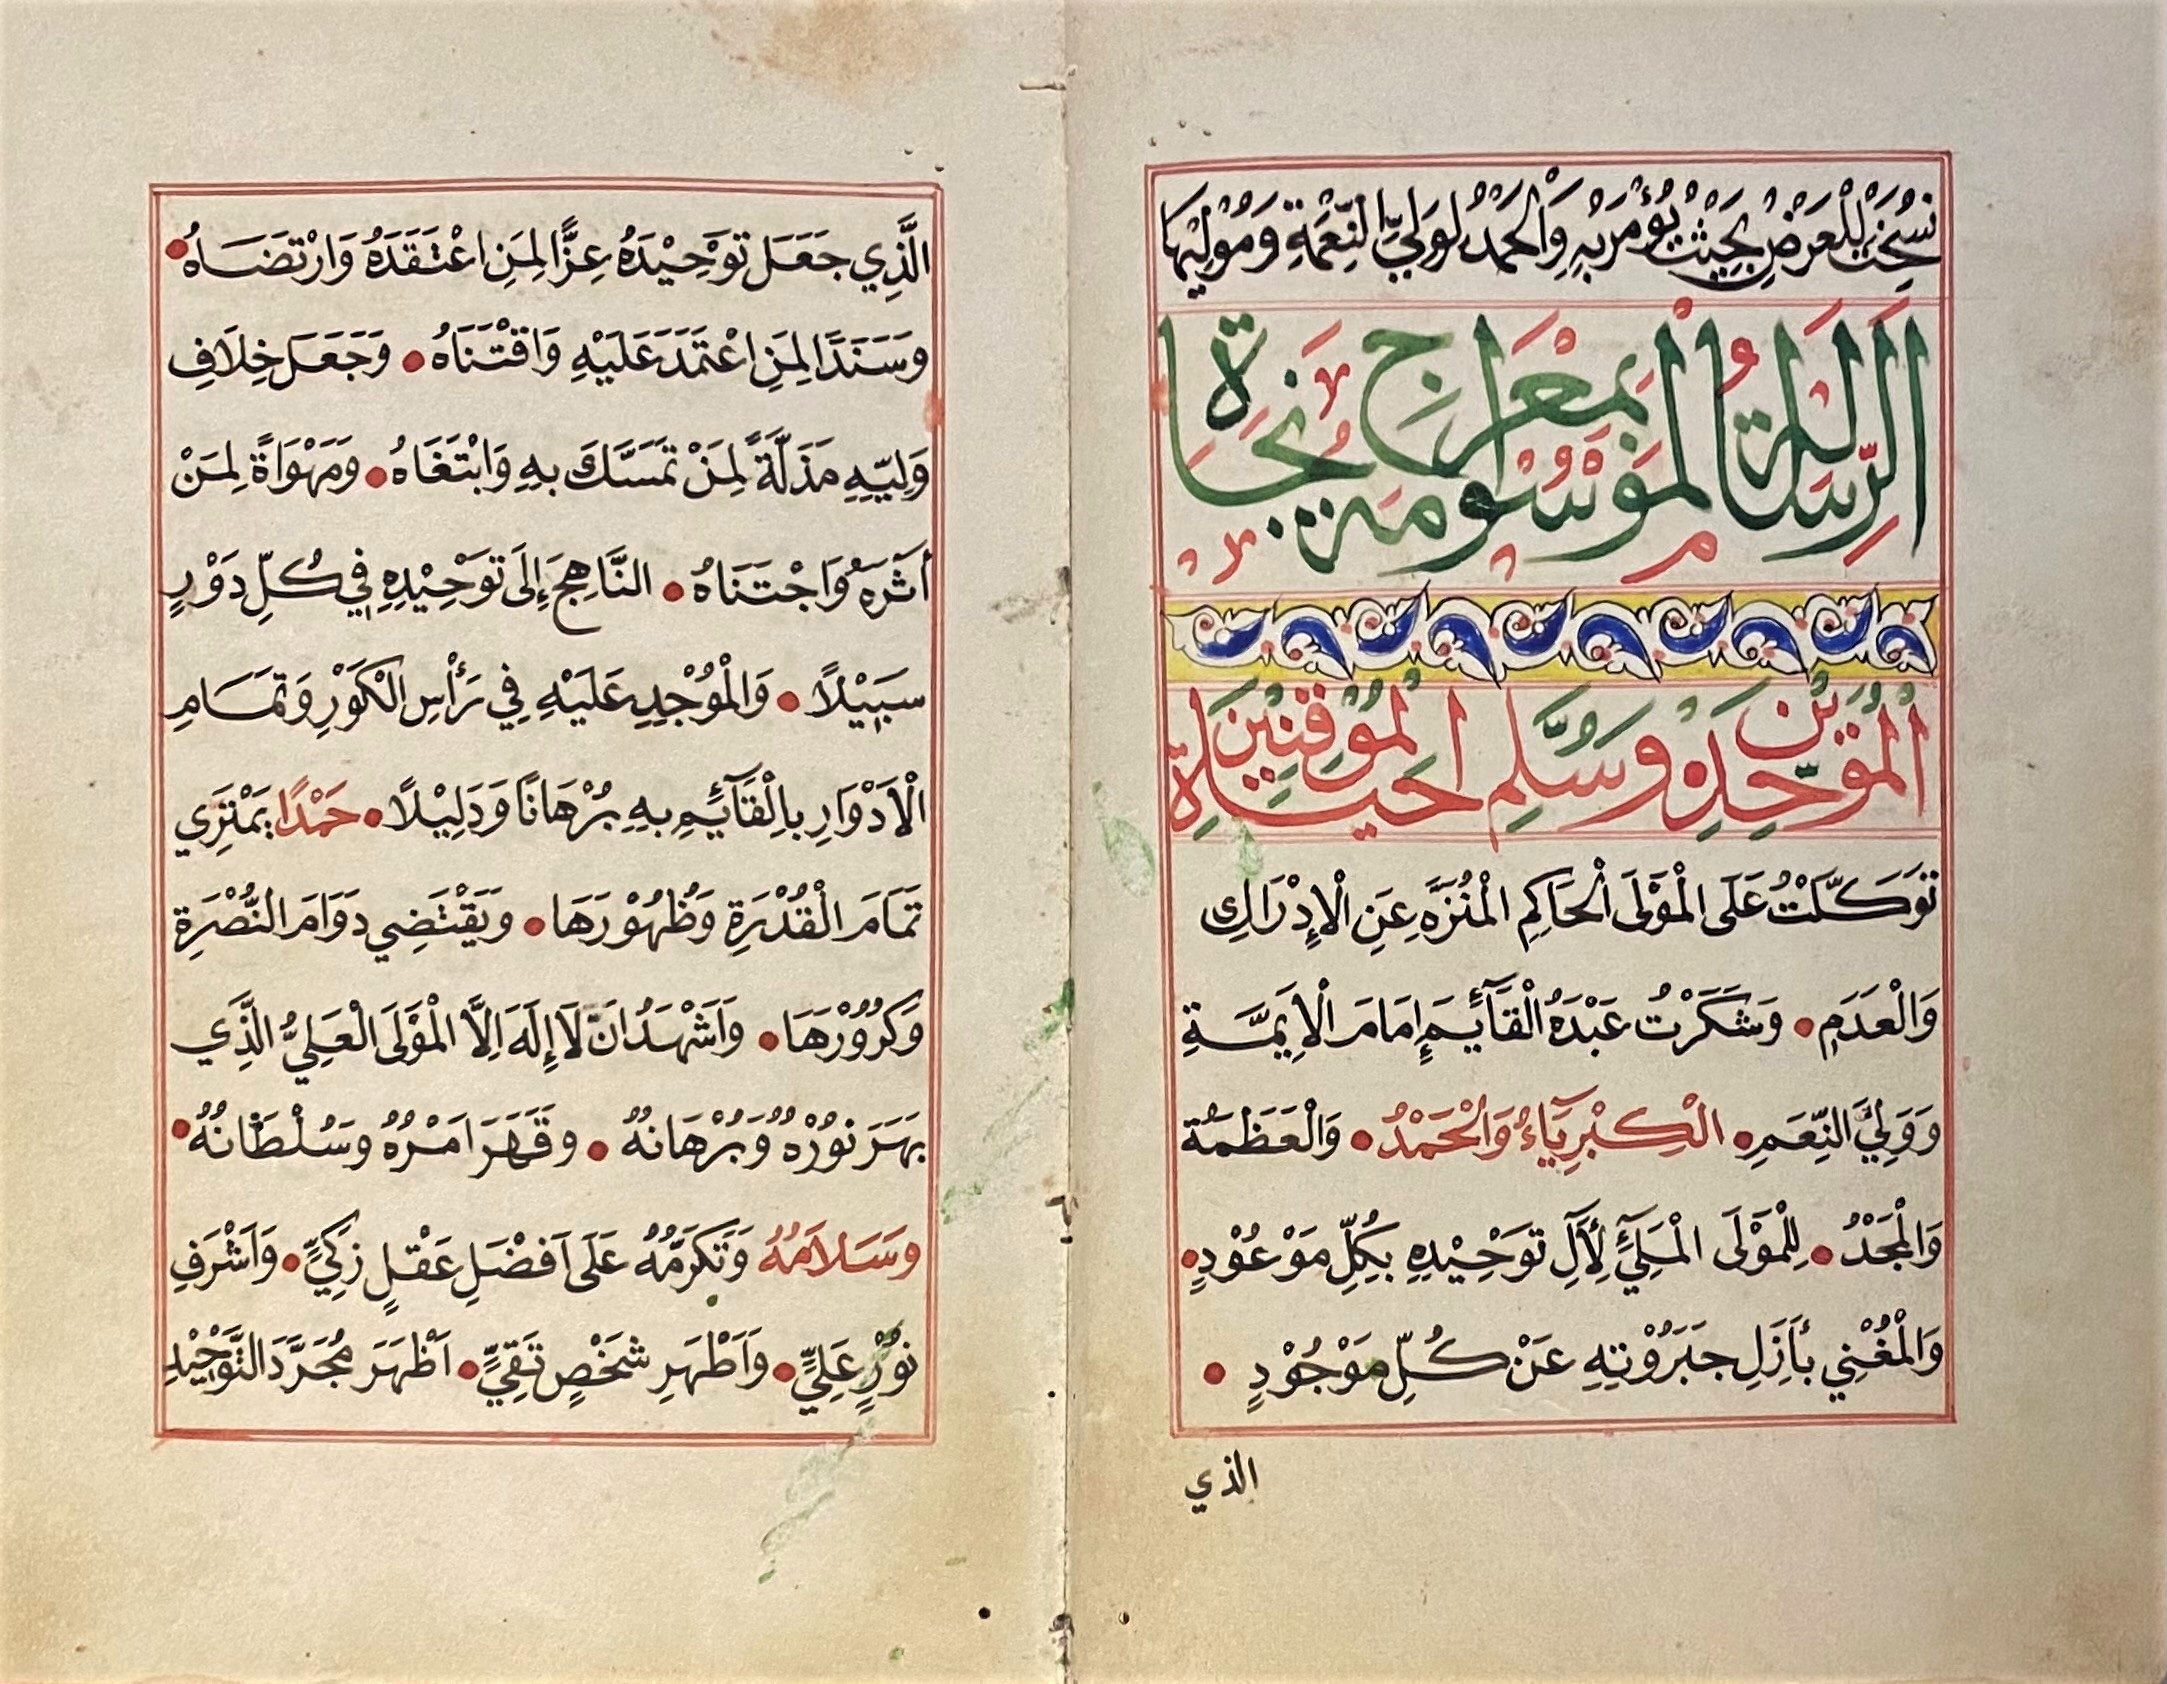 نُسِخَتْ لِلْعَرْضِ بِحَيْثُ يُؤْمَرُ بِهِ وَالْحَمْدُ لِوَلِيِّ النِّعْمَةِ وَمُوْلِيْهَا
الرِّسَالَةُ الْمَوْسُومَةُ بِمَعْرَاجِ نَجَاةِ
الْمُوَحِّدِيْنَ وَسُلَّمِ حَيَاةِ الْمُوْقِنِيْنَ
تَوَكَّلْتُ عَلَى الْمَوْلَى الْحَاكِمِ الْمُنَزَّهِ عَنِ الْإِدْرَاكِ
وَالْعَدَمِ • وَشَكَرْتُ عَبْدَهُ الْقَآئِمَ إِمَامَ الْأَيِمَّةِ
وَوَلِيَّ النِّعَمِ • الْكِبْرِيَآءُ وَالْحَمْدُ • وَالْعَظَمَةُ
وَالْمَجْدُ • لِلْمَوْلَى الْمَلِيِّ لِأَلِ تَوْحِيْدِهِ بِكُلِّ مَوْعُوْدٍ •
وَالْمُغْنِي بِأَزَلِ جَبَرُوْتِهِ عَنْ كُلِّ مَوْجُوْدٍ •
الذي
الَّذِي جَعَلَ تَوْحِيْدَهُ عِزًّا لِمَنِ اعْتَقَدَهُ وَارْتَضَاهُ •
وَسَنَدًا لِمَنِ اعْتَمَدَ عَلَيْهِ وَاقْتَنَاهُ • وَجَعَلَ خِلَافِ
وَلِيِّهِ مَذَلَّةً لِمَنْ تَمَسَّكَ بِهِ وَابْتَغَاهُ • وَمَهْوَاةً لِمَنْ
آثَرَهُ وَاجْتَنَاهُ • النَّاهِجِ إِلَى تَوْحِيْدِهِ فِي كُلِّ دَوْرٍ
سَبِيْلًا • وَالْمُوْجِدِ عَلَيْهِ فِي رَأْسِ الْكَوْرِ وَتَمَامِ
الْاَدْوَارِ بِالْقَآئِمِ بِهِ بُرْهَانًا وَدَلِيْلًا • حَمْدًا يَمْتَرِي
تَمَامَ الْقُدْرَةِ وَظُهُوْرَهَا • وَيَقْتَضِي دَوَامَ النُّصْرَةِ
وَكَرُوْرَهَا • وَاَشْهَدُ اَنْ لَا إِلَهَ اِلَّا الْمَوْلَى الْعَلِيُّ الَّذِي
بَهَرَ نُوْرُهُ وَبُرْهَانُهُ • وَقَهَرَ اَمْرُهُ وَسُلْطَانُهُ •
وَسَلَامُهُ وَتَكَرُّمُهُ عَلَى اَفْضَلِ عَقْلٍ زَكِيٍّ • وَاَشْرَفِ
نُوْرٍ عَلِيٍّ • وَاَطْهَرِ شَخْصٍ تَقِيٍّ • اَظْهَرَ مُجَرَّدَ التَّوْحِيْدِ